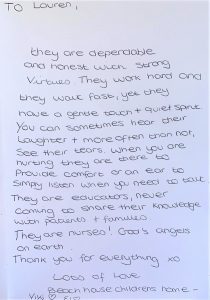 TO Lauren,
they are dependable
and honest with strong
Virtues. They work hard and
they walk fast, yet they
have a gentle touch + quiet spirit
You can sometimes hear their
laughter + more often than not,
see their tears. When you are
hurting they are there to
Provide comfort or an ear to
Simply listen when you need to talk
They are educators, never
Coming to share their knowledge
with patients + families
They are nurses! God's angels
on earth
Thank you for everything xo
Loss of Love
Beach house childrens home -
Vivi